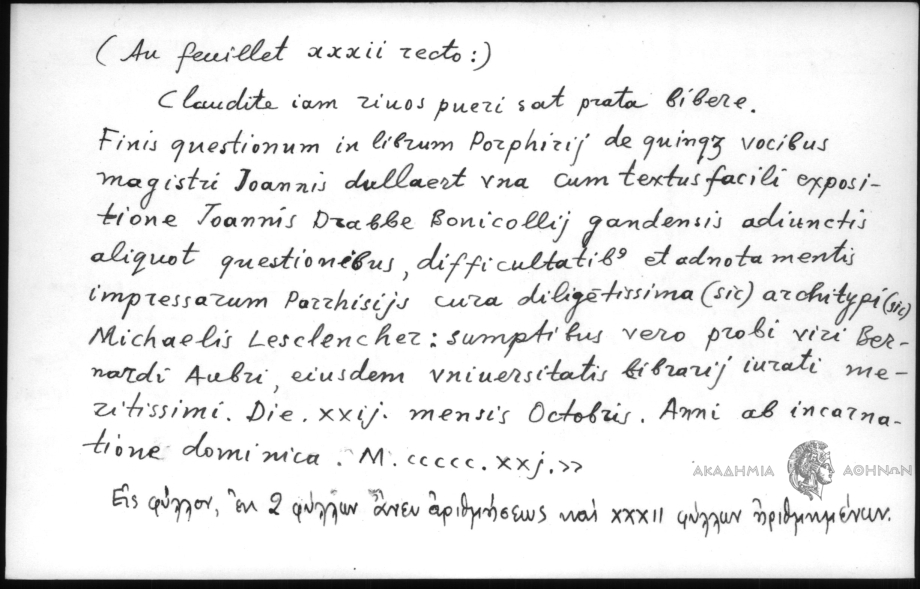 (Au feuillet xxxii recto:)
Claudite iam riuos pueri sat prata bibere.
Finis questionum in librum Porphirij de quinqȝ vocibus
magistri Joannis dullaert vna cum textus facili exposi-
tione Joannis Drabbe Bonicollij gandensis adiunctis
aliquot questionibus, difficultatibꝰ et adnotamentis
impressarum Parrhisijs cura diligētissima (sic) architypi (sic)
Michaelis Lesclencher: sumptibus vero probi viri Ber-
nardi Aubri, eiusdem vniuersitatis bibrarij iurati me-
ritissimi. Die. xxij. mensis Octobris. Anni ab incarna-
tione dominica. M. ccccc. xxj.»
ΑΚΑΔΗΜΙΑ ΑΘΗΝΩΝ
Εἰς φύλλον, ἐκ 2 φύλλων ἄνευ ἀριθμήσεως καὶ XXXII φύλλων ἠριθμημένων.